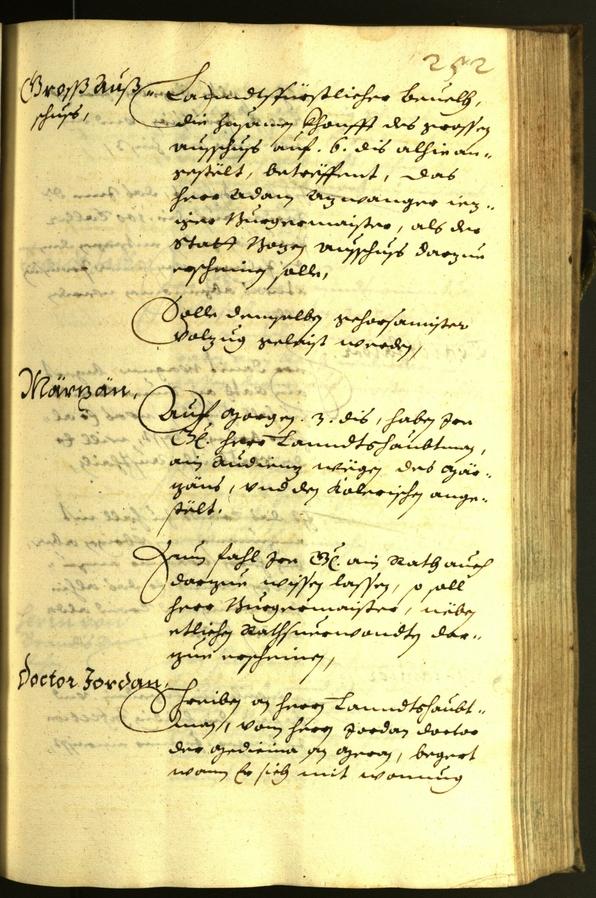 252
Gross Auß-
schuss,
Lanndtsfürstlicher beuelch,
die zusamen khonfft des grossen
ausschuss auf. 6. dis alhie an-
gestelt, betreffent, das
herr Adam Azwanger iez-
iger Burgermaister, als der
Statt Bozen ausschuss darzue
erscheinen solle,
Solle demselben gehorsamister
volzug gelaist werden,
Märzän,
Auf morgen. 3. dis, haben Ir
Gl. herr Lanndtshaubtman,
ain Audienz wegen des Mär-
zäns, vnd der ange-
stelt.
Zum fahl Ir Gl. ain Rath auch
darzue wissen lassen, so soll
herr Burgermaister, neben
etlichen Rathsuerwondten dar-
zue erscheinen,
Doctor Jordan,
Schreiben an herrn Lanndtshaubt-
man, vom herrn Jordan doctor
der medicina an Meran, begert
wann Er sich mit wonung